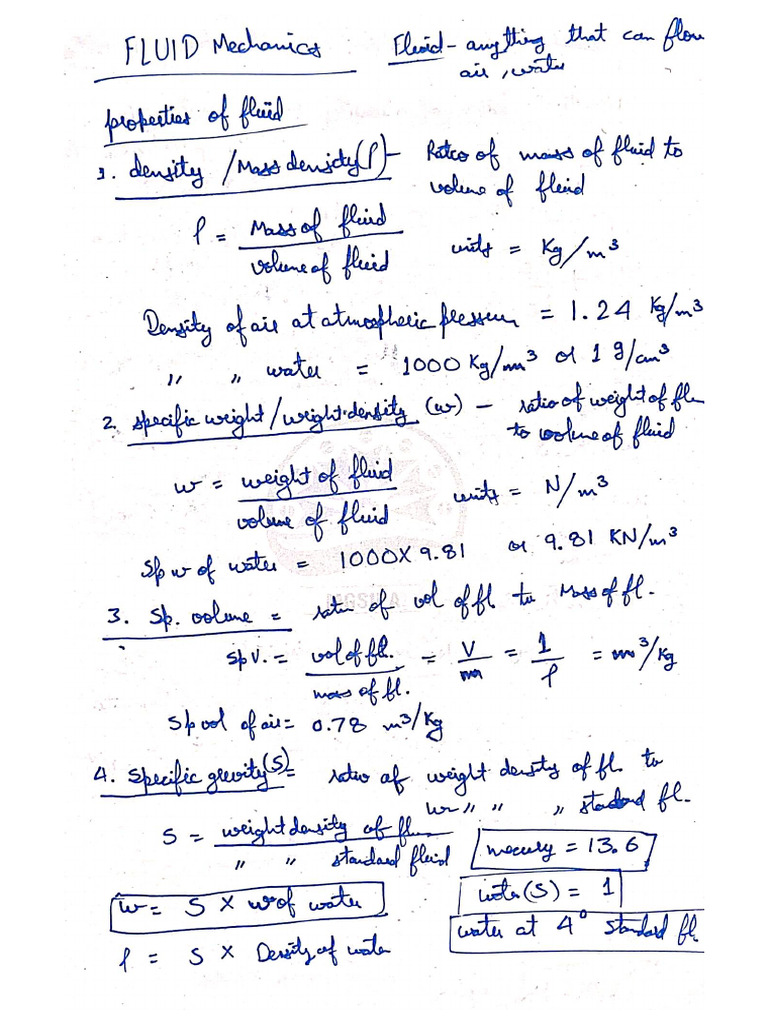 FLUID Mechanics
Fluid - anything that can flow
air, water
properties of fluid
1. density / Mass density (ρ) - Ratio of mass of fluid to
volume of fluid
ρ = Mass of fluid / volume of fluid
units = Kg/m³
Density of air at atmospheric pressure = 1.24 Kg/m³
" " water = 1000 Kg/m³ or 1 g/cm³
2. specific weight / weight density (w) - ratio of weight of fl
to volume of fluid
w = weight of fluid / volume of fluid
units = N/m³
Sp w of water = 1000 X 9.81 or 9.81 KN/m³
3. Sp. volume = ratio of vol of fl to Mass of fl.
sp V. = vol of fl. / mass of fl. = V / m = 1 / ρ = m³/Kg
Sp vol of air = 0.78 m³/Kg
4. Specific gravity (S) = ratio of weight density of fl. to
wr " " " standard fl.
S = weight density of fl / " " standard fluid
mercury = 13.6
water (S) = 1
w = S X w of water
water at 4° standard fl
ρ = S X Density of water